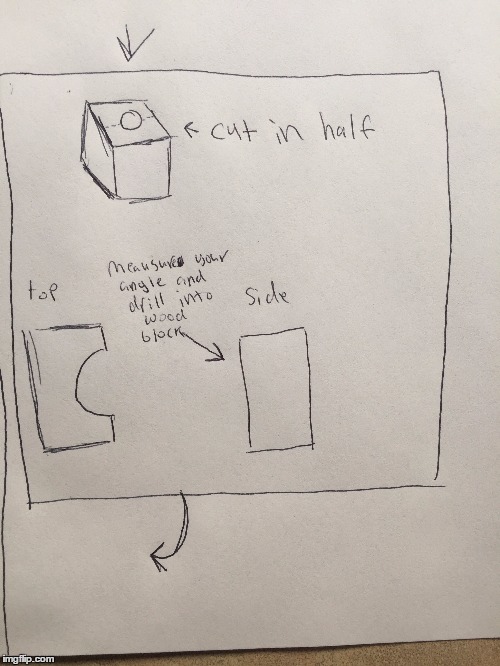 cut in half
measure your
angle and
drill into
wood
block
top
side
imgflip.com